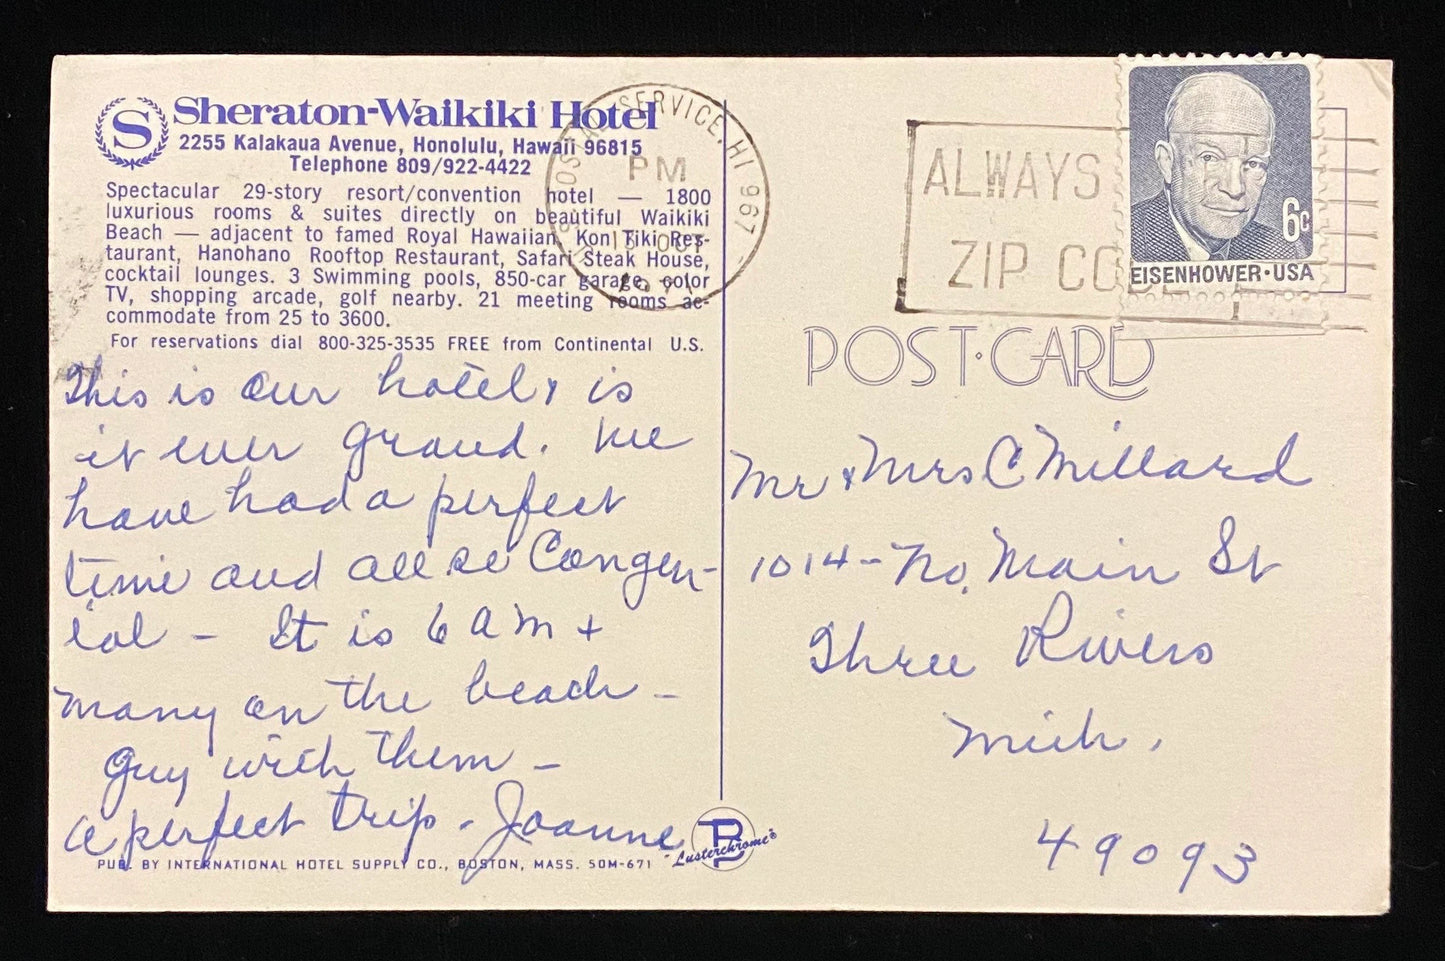 S
Sheraton-Waikiki Hotel
2255 Kalakaua Avenue, Honolulu, Hawaii 96815
Telephone 809/922-4422
Spectacular 29-story resort/convention hotel — 1800
luxurious rooms & suites directly on beautiful Waikiki
Beach — adjacent to famed Royal Hawaiian, Kon Tiki Res-
taurant, Hanohano Rooftop Restaurant, Safari Steak House,
cocktail lounges. 3 Swimming pools, 850-car garage, color
TV, shopping arcade, golf nearby. 21 meeting rooms ac-
commodate from 25 to 3600.
For reservations dial 800-325-3535 FREE from Continental U.S.
This is our hotel & is
it ever grand. We
have had a perfect
time and all so Congen-
ial – It is 6 am +
many on the beach –
Guy with them –
a perfect trip. Joanne
PUB. BY INTERNATIONAL HOTEL SUPPLY CO., BOSTON, MASS. SOM-671
"Lusterchrome"®
POSTAL SERVICE, HI 967
PM
OCT
ALWAYS
ZIP CODE
6c
EISENHOWER·USA
POST·CARD
Mr & Mrs C Millard
1014 - No. Main St
Three Rivers
Mich.
49093